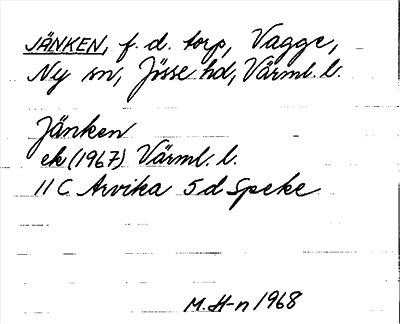 JÄNKEN, f.d. torp, Vagge,
Ny sn, Jösse hd, Värml. l.
Jänken
ek (1967) Värml. l.
11 C Arvika 5 d Speke
M. H-n 1968